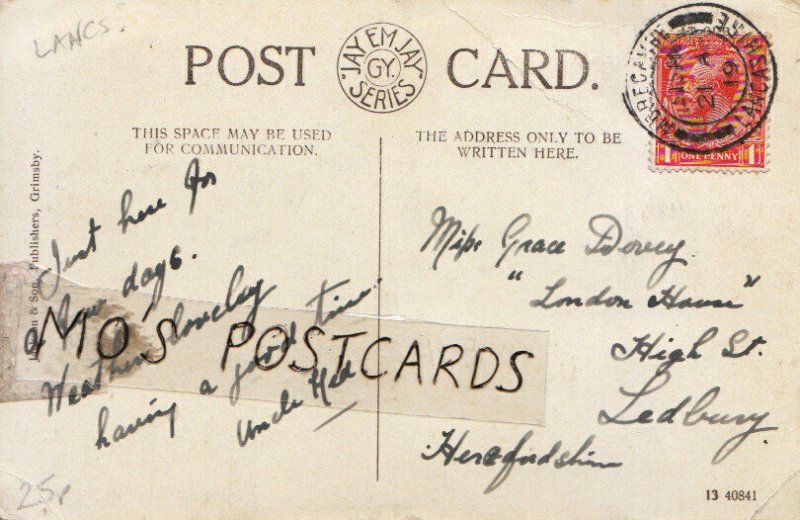 LANCS.
POST CARD.
"JAY EM JAY"
GY.
SERIES
THIS SPACE MAY BE USED
FOR COMMUNICATION.
THE ADDRESS ONLY TO BE
WRITTEN HERE.
MORECAMBE
LANCASHIRE
21
19
1 ONE PENNY 1
& Son, Publishers, Grimsby.
Just here for
a few days.
Weather lovely
having a good time.
Uncle
MO'S POSTCARDS
Miss Grace Dovey
"London House"
High St.
Ledbury
Herefordshire
25p
13 40841